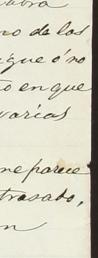 abra
no de los
sigue ó no
to en que
varias
me parece
trasado,
en